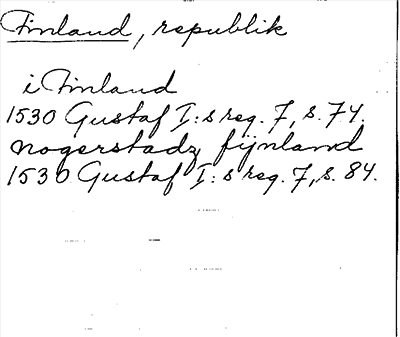 Finland, republik
i Finland
1530 Gustaf I:s reg. 7, s. 74.
nogerstadz fijnland
1530 Gustaf I:s reg. 7, s. 84.